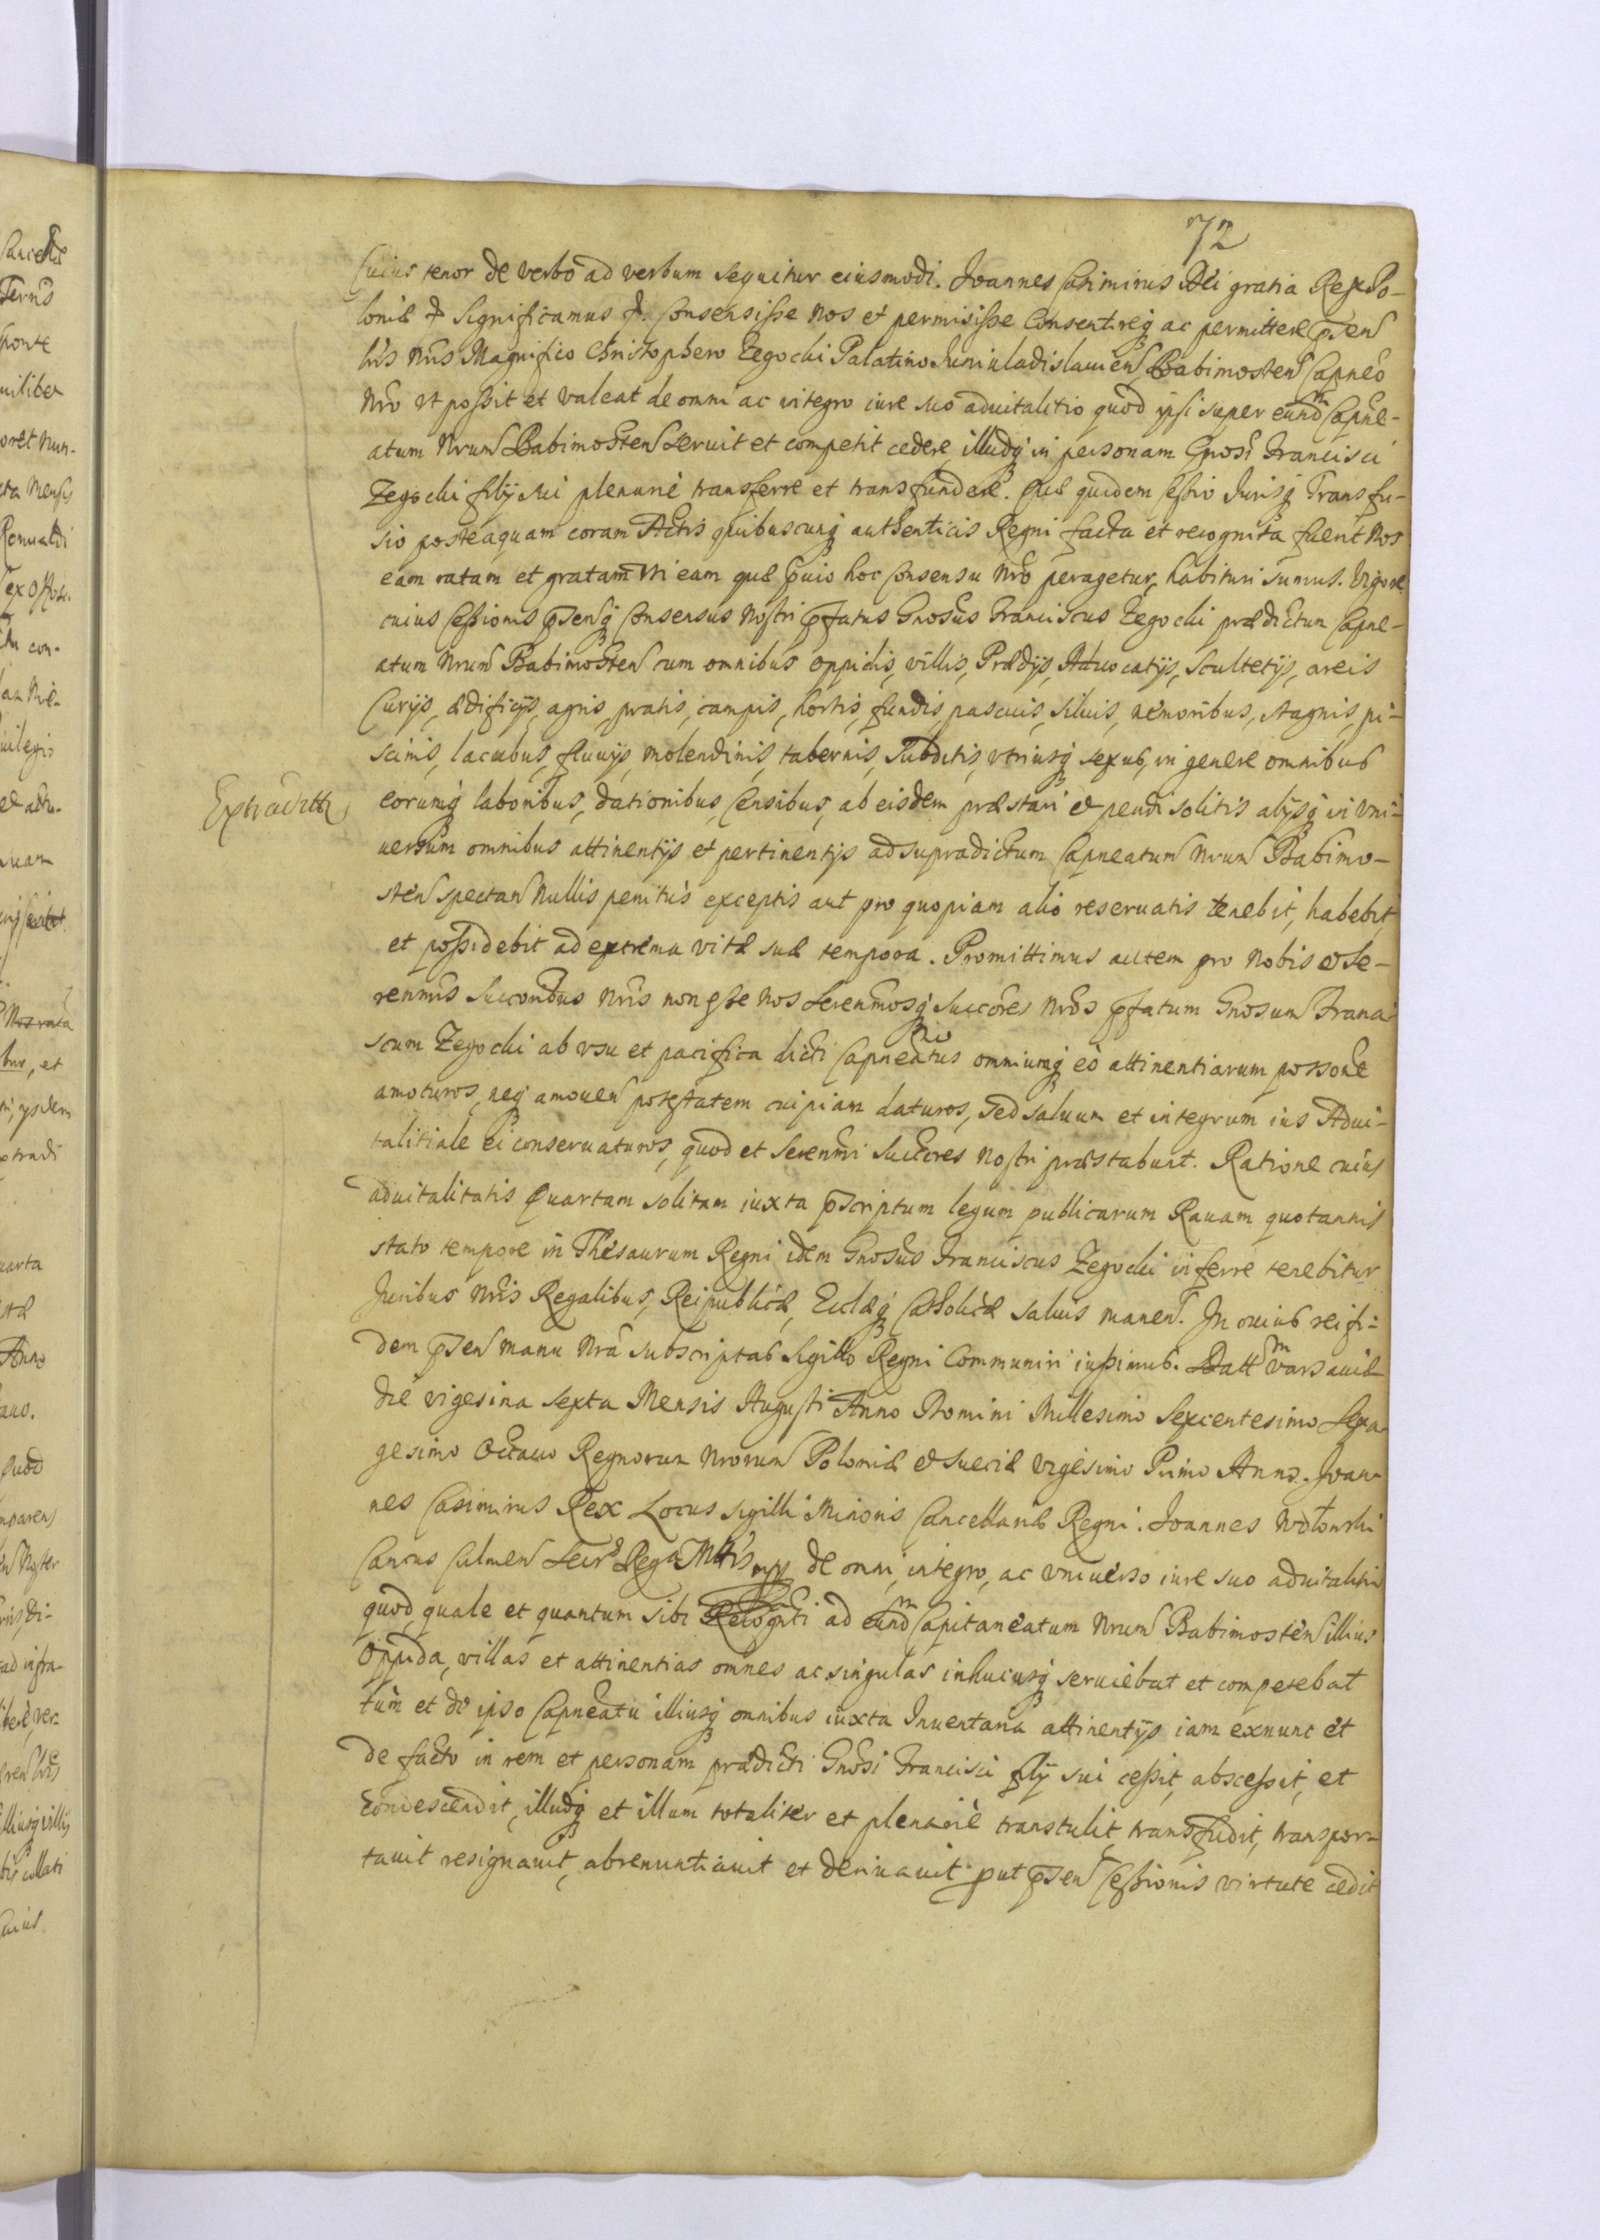 72
Cuius tenor de verbo ad verbum sequitur eiusmodi. Joannes Casimirus Dei gratia Rex Po-
loniæ significamus Consensisse Nos et permisisse Consentireq ac permittere pñen
tibus Nris Magnifico Christophero Zegocki Palatino Juniuladislauien Babimosten Capneo
Nro vt possit et valeat de omni ac integro iure suo aduitalitio quod ipsi super eundm Capne-
atum Nrum Babimosten seruit et competit cedere illudq in personam Gnosi Francisci
Zegocki filij sui plenarie transferre et transfundere. Quæ quidem Cessio Jurisq Transfu-
sio posteaquam coram Actis quibuscunq authenticis Regni facta et recognita fuerit Nos
eam ratam et gratam vti eam quæ hoc Consensu Nro peragetur, habituri sumus. Vigore
cuius Cessionis pñenq Consensus Nostri pfatus Gnosus Franciscus Zegocki prædictum Capne-
atum Nrum Babimosten cum omnibus oppidis, villis, Prædijs, Aduocatijs, Scultetijs, areis
Curijs, ædificijs, agris, pratis, campis, hortis, fundis, pascuis, siluis, nemoribus, stagnis, pi-
scinis, lacubus, fluuijs, molendinis, tabernis, Subditis, vtriusq sexus, in genere omnibus
Extradittr
eorumq laboribus, dationibus, Censibus, ab eisdem præstari et pendi solitis alijsq in vni-
uersum omnibus attinentijs et pertinentijs ad supradictum Capneatum Nrum Babimo-
sten spectan Nullis penitus exceptis aut pro quopiam alio reseruatis tenebit, habebit,
et possidebit ad extrema vitæ suæ tempora. Promittimus autem pro Nobis et Se-
renmis Succoribus Nris non esse Nos Serenmosq Succores Nros pfatum Gnosum Franci
scum Zegocki ab vsu et pacifica dicti Capneatus omniumq eo attinentiarum possone
amoturos, neq amouen potestatem cuipiam daturos, sed saluum et integrum ius Adui-
talitiale ei conseruaturos, quod et Serenmi Succores Nostri præstabunt. Ratione cuius
aduitalitatis Quartam solitam iuxta pscriptum legum publicarum Rauam quotannis
stato tempore in Thesaurum Regni idem Gnosus Franciscus Zegocki inferre tenebitur
Juribus Nris Regalibus, Reipublicæ, Ecclæq Catholicæ saluis manen. In cuius rei fi-
dem pñen manu Nra subscriptas Sigillo Regni Communiri iussimus. Datt Varsauiæ
die vigesima sexta Mensis Augusti Anno Domini Millesimo Sexcentesimo Sexa-
gesimo Octauo Regnorum Nrorum Poloniæ et Sueciæ vigesimo Primo Anno. Joan-
nes Casimirus Rex Locus Sigilli Minoris Cancellariæ Regni. Joannes Wolowski
Cancus Culmen Secrs Rega Mttis mpp de omni, integro, ac vniuerso iure suo aduitalitio
quod, quale et quantum sibi Recognti ad eundm Capitaneatum Nrum Babimosten illius
Oppida, villas et attinentias omnes ac singulas inhucusq seruiebat et competebat
tum et de ipso Capneatu illiusq omnibus iuxta Inuentaria attinentijs iam exnunc et
de facto in rem et personam prædicti Gnosi Francisci filij sui cessit, abscessit, et
Condescendit, illudq et illum totaliter et plenarie transtulit, transfudit, transpor-
tauit resignauit, abrenuntiauit et deriuauit put pñen Cessionis virtute cedit